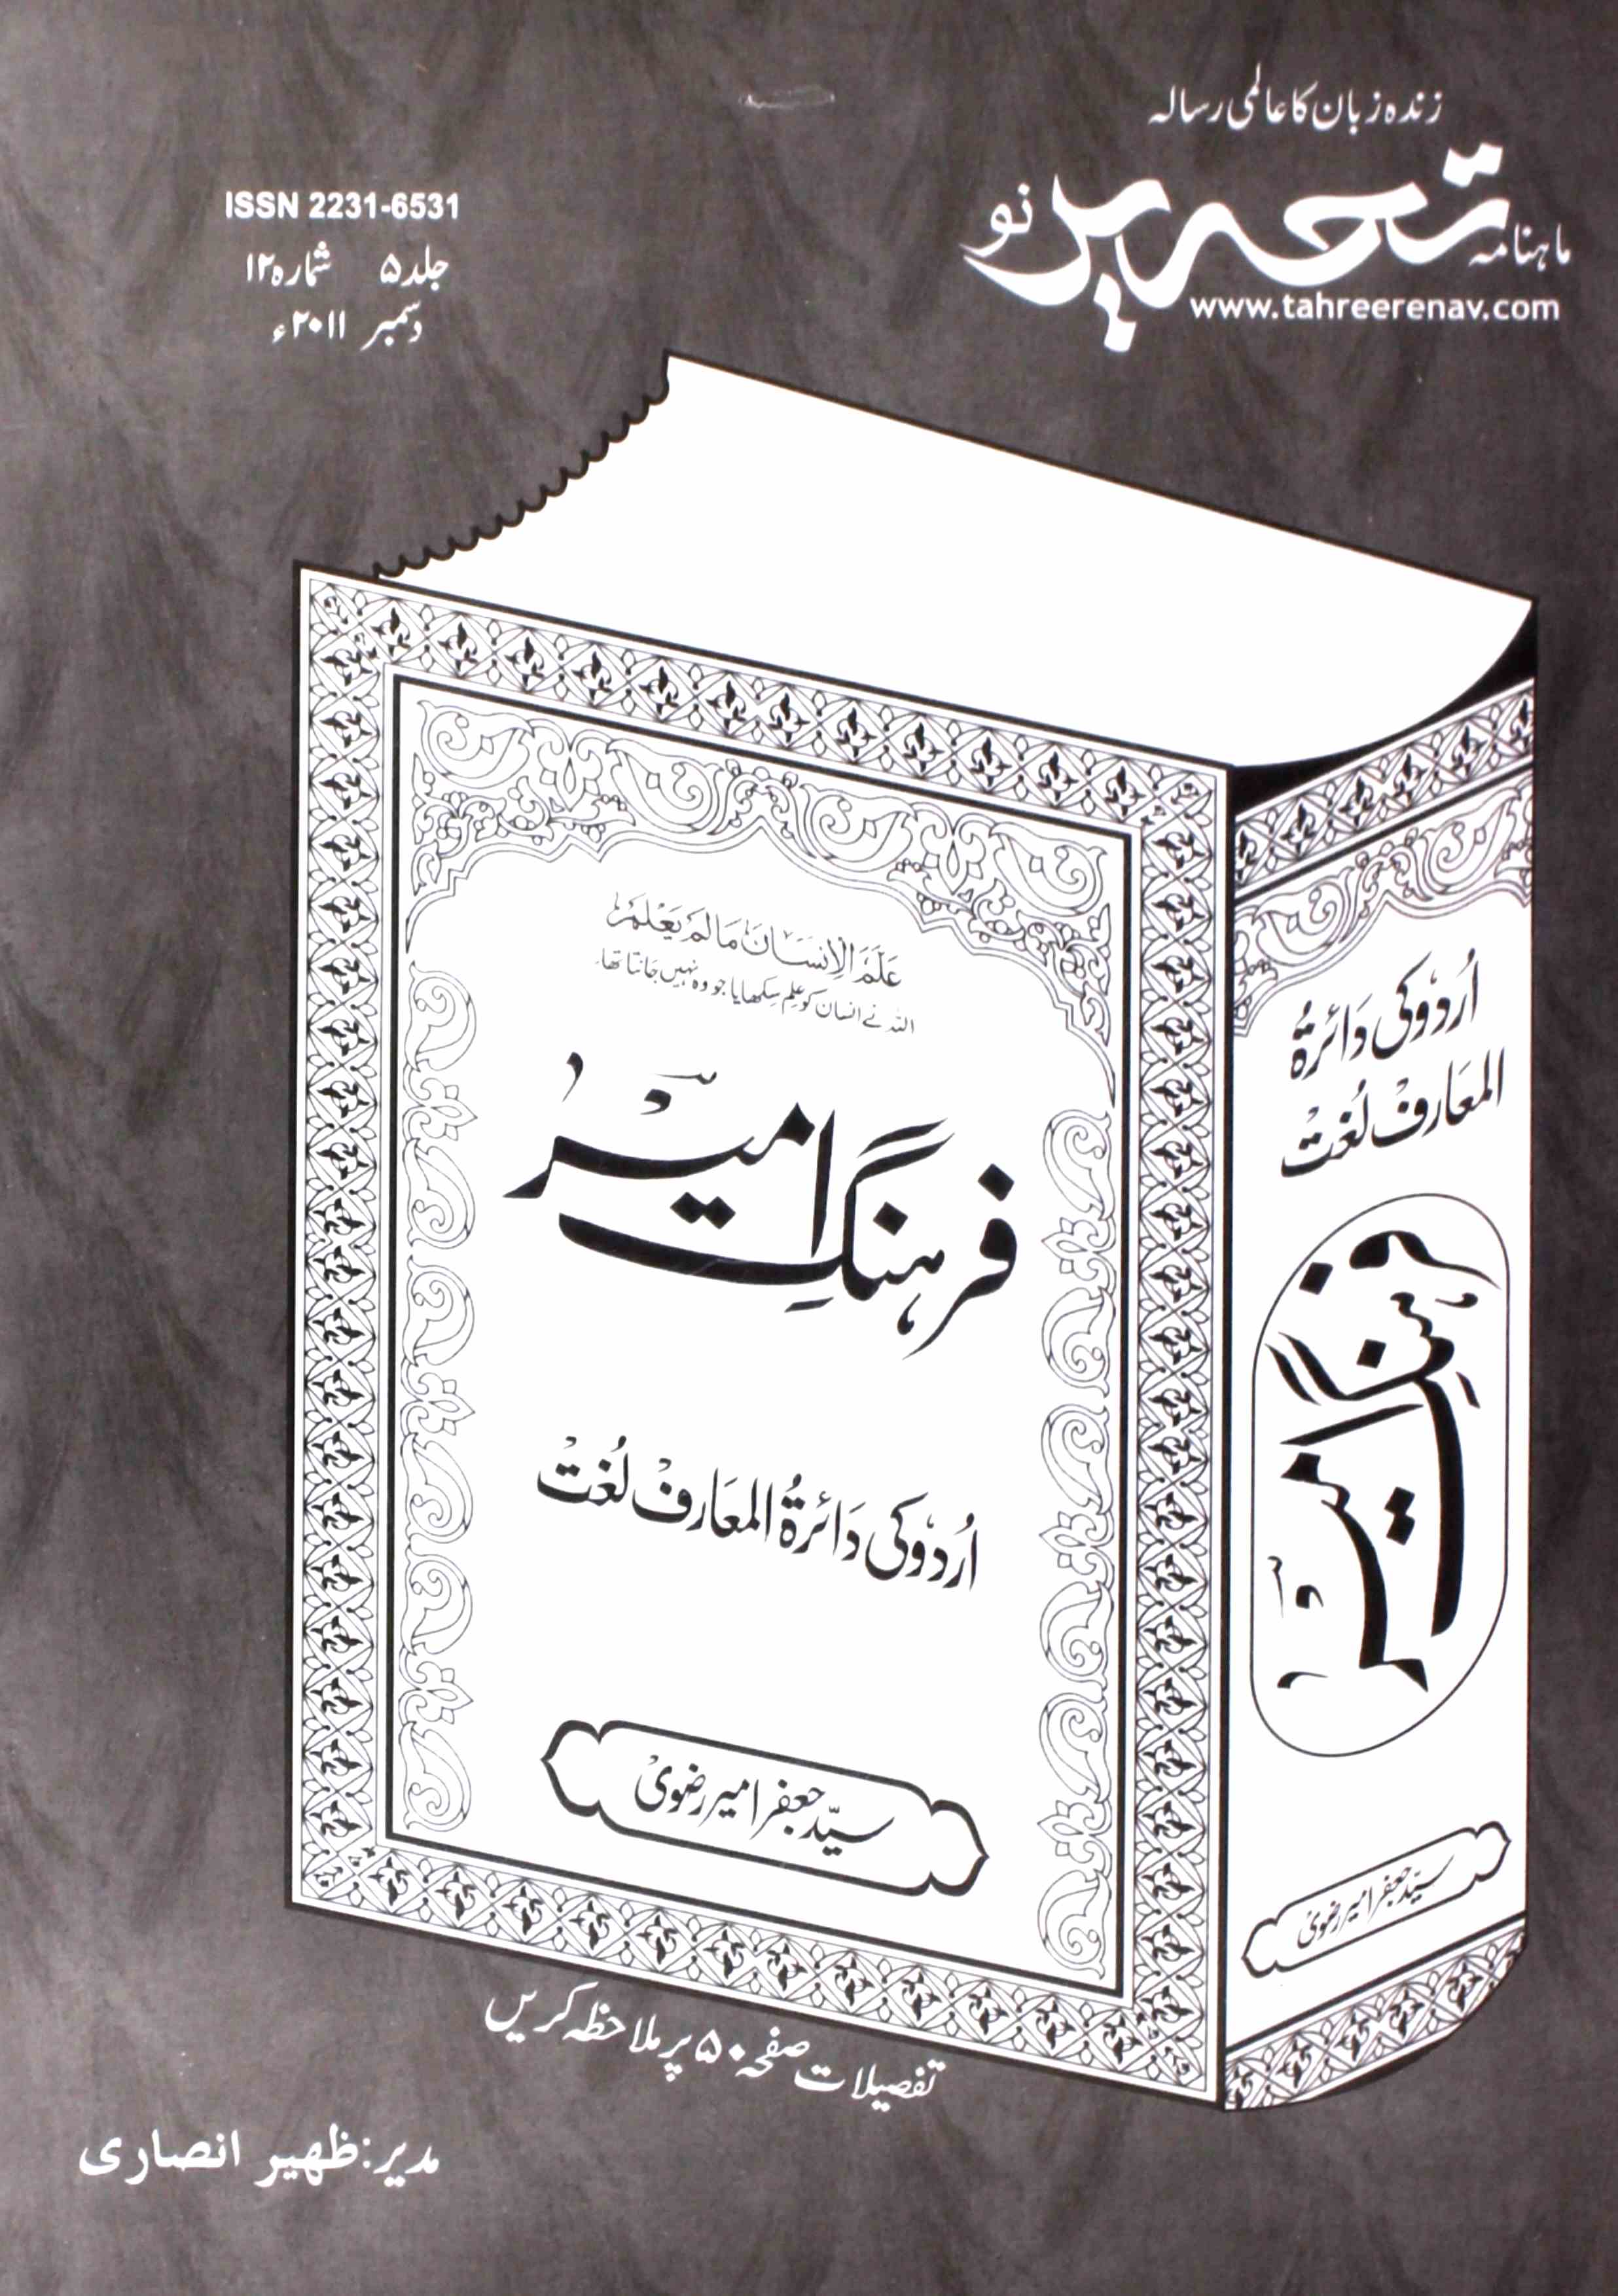 زندہ زبان کا عالمی رسالہ
ماہنامہ تحریر نو
www.tahreerenav.com
ISSN 2231-6531
جلد ۵ شمارہ ۱۲
دسمبر ۲۰۱۱ء
عَلَّمَ الْاِنْسَانَ مَا لَمْ يَعْلَمْ
اللہ نے انسان کو علم سکھایا جو وہ نہیں جانتا تھا۔
فرہنگِ امیر
اُردو کی دَائرۃُ المعَارف لُغت
سیّد جعفر امیر رضوی
اُردو کی دَائرۃُ
المعَارف لُغت
فرہنگِ امیر
سیّد جعفر امیر رضوی
تفصیلات صفحہ ۵۰ پر ملاحظہ کریں
مدیر: ظہیر انصاری